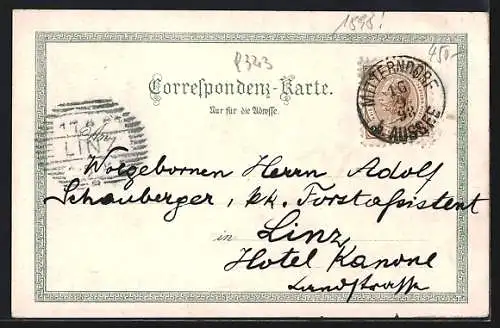 1898!
450.-
P323
Correspondenz-Karte.
Nur für die Adresse.
MITTERNDORF
16
98
AUSSEE
LINZ
Wolgebornen Herrn Adolf
Schauberger, k.k. Forstassistent
in Linz
Hotel Kanone
Landstrasse